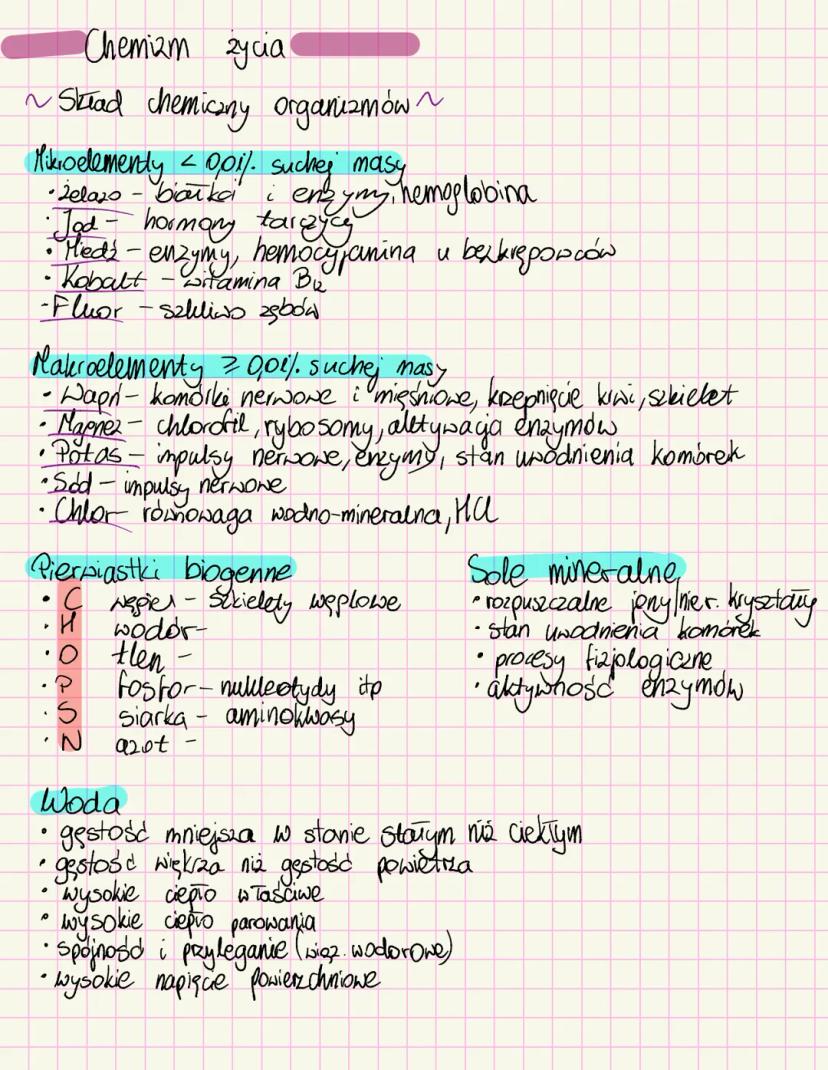 Chemizm życia
~ Skład chemiczny organizmów ~
Mikroelementy < 0,01% suchej masy
• żelazo – białka i enzymy, hemoglobina
• Jod – hormony tarczycy
• Miedź – enzymy, hemocyjanina u bezkręgowców
• Kobalt – witamina B12
- Fluor – szkliwo zębów
Makroelementy ≥ 0,01% suchej masy
• Wapń – komórki nerwowe i mięśniowe, krzepnięcie krwi, szkielet
• Magnez – chlorofil, rybosomy, aktywacja enzymów
• Potas – impulsy nerwowe, enzymy, stan uwodnienia komórek
• Sód – impulsy nerwowe
• Chlor – równowaga wodno-mineralna, HCl
Pierwiastki biogenne
• C węgiel – szkielety węglowe
• H wodór –
• O tlen –
• P fosfor – nukleotydy itp
• S siarka – aminokwasy
• N azot –
Sole mineralne
• rozpuszczalne jony/nier. kryształy
• stan uwodnienia komórek
• procesy fizjologiczne
• aktywność enzymów
Woda
• gęstość mniejsza w stanie stałym niż ciekłym
• gęstość większa niż gęstość powietrza
• wysokie ciepło właściwe
• wysokie ciepło parowania
• spójność i przyleganie (wiąz. wodorowe)
• wysokie napięcie powierzchniowe